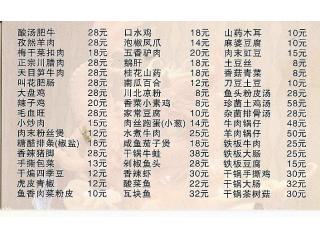 酸汤肥牛 28元 口水鸡 18元 山药木耳 10元
孜然羊肉 28元 泡椒凤爪 14元 麻婆豆腐 10元
梅干菜扣肉 28元 五香驴肉 20元 肉末豇豆 15元
正宗川腊肉 28元 鹅肝 18元 土豆丝 8元
天目笋牛肉 28元 桂花山药 18元 香菇青菜 8元
叫花肥肠 28元 南瓜百合 12元 刀豆土豆 10元
大盘鸡 28元 川北凉粉 8元 鱼头粉皮汤 28元
辣子鸡 20元 香菜小素鸡 8元 珍菌土鸡汤 58元
毛血旺 28元 家常豆腐 10元 杂菌排骨汤 28元
小炒肉 15元 肉丝跑蛋(小葱) 14元 牛肉锅仔 28元
肉末粉丝煲 12元 水煮牛肉 20元 羊肉锅仔 50元
糖醋排条(椒盐) 18元 咸鱼茄子煲 18元 铁板牛肉 20元
香辣猪脚 28元 干锅牛蛙 38元 铁板大肠 25元
手撕包菜 13元 剁椒鱼头 28元 铁板豆腐 15元
干煸四季豆 12元 香辣虾 30元 干锅手撕鸡 30元
虎皮青椒 12元 酸菜鱼 22元 干锅大肠 32元
鱼香肉菜粉皮 10元 瓦块鱼 32元 干锅茶树菇 30元